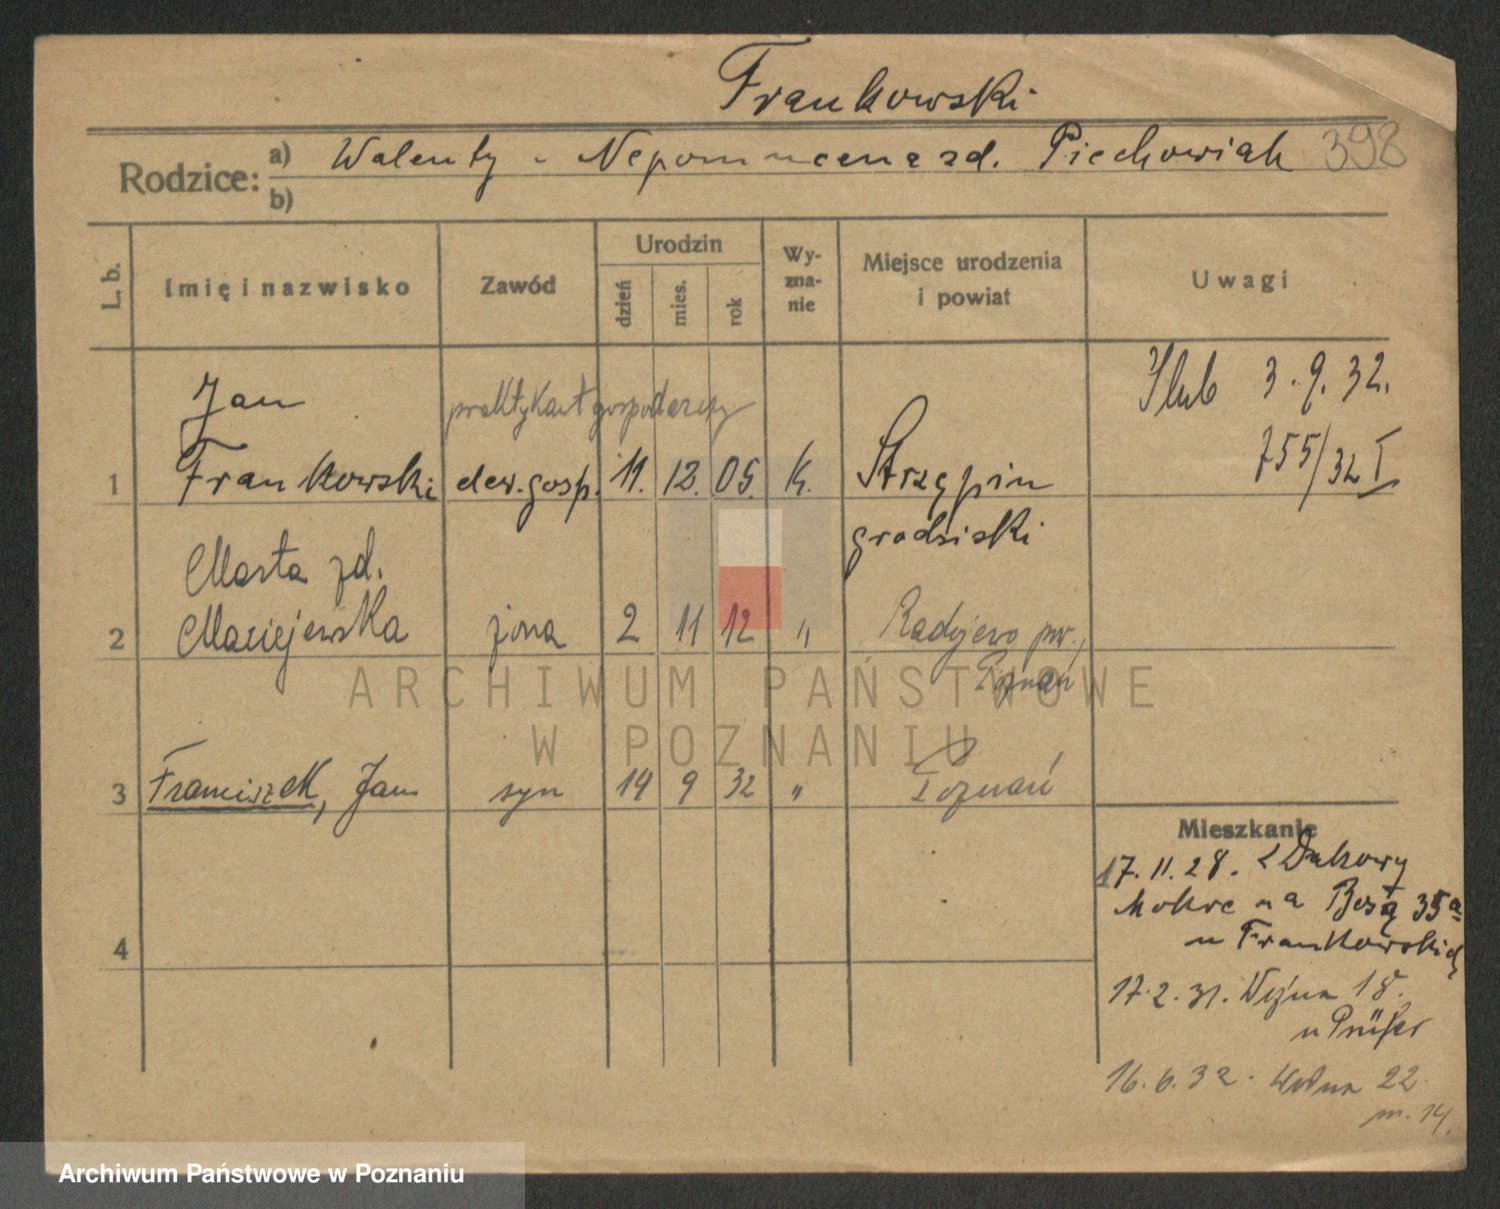 Frankowski
Rodzice: a) Walenty - Nepomucena zd. Piechowiak 398
b)
L. b.
Imię i nazwisko
Zawód
Urodzin
dzień
mies.
rok
Wy-
zna-
nie
Miejsce urodzenia
i powiat
Uwagi
Jan
praktykant gospodarczy
Ślub 3.9.32.
755/32 I
1 Frankowski dew. gosp. 11. 12. 05. k. Strzępin
grodziski
Marta zd.
2 Maciejewska żona 2 11 12 " Radojewo pow.
Poznań
3 Franciszek, Jan syn 14 9 32 " Poznań
4
Mieszkanie
17.11.28. z Dakowy
Mokre na 35a
u Frankowskich
17.2.31. 18.
u Prüfer
16.6.32. Wolna 22
m. 14.
ARCHIWUM PAŃSTWOWE
W POZNANIU
Archiwum Państwowe w Poznaniu